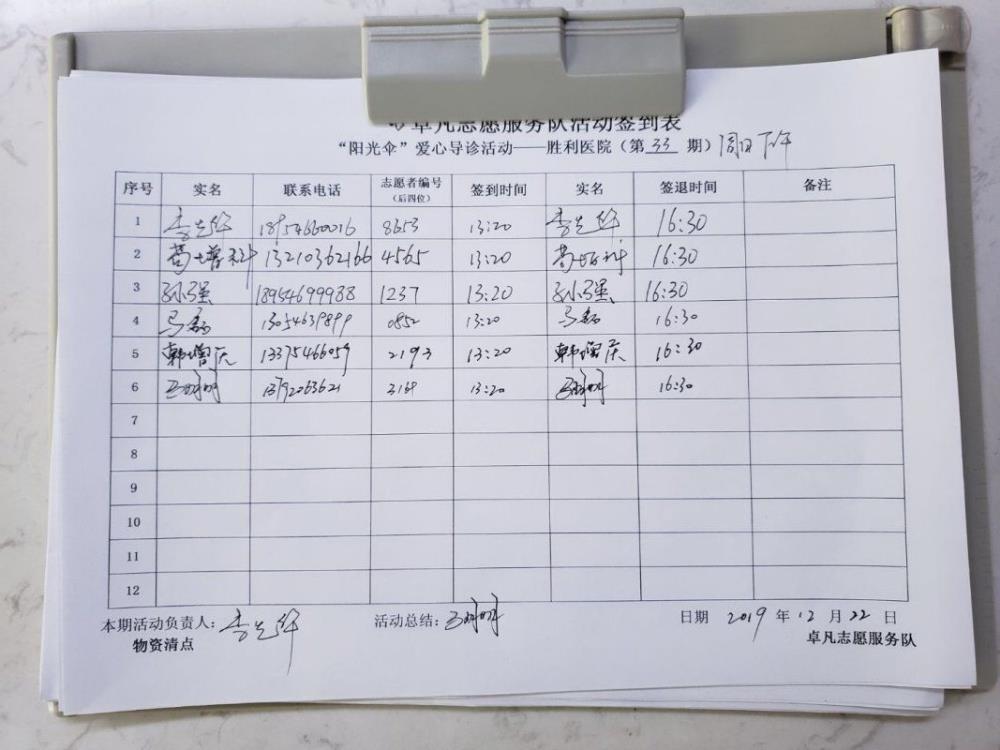 卓凡志愿服务队活动签到表
“阳光伞”爱心导诊活动——胜利医院（第 33 期）周日下午
序号 实名 联系电话 志愿者编号（后四位） 签到时间 实名 签退时间 备注
1 李先华 18954660016 8653 13:20 李先华 16:30
2 葛增科 13210362166 4565 13:20 葛增科 16:30
3 孙强 18954699988 1237 13:20 孙强 16:30
4 马磊 13054639899 0852 13:20 马磊 16:30
5 韩增庆 13375466059 2193 13:20 韩增庆 16:30
6 13792063621 3169 13:20 16:30
7
8
9
10
11
12
本期活动负责人：李先华 活动总结： 日期 2019 年 12 月 22 日
物资清点 卓凡志愿服务队